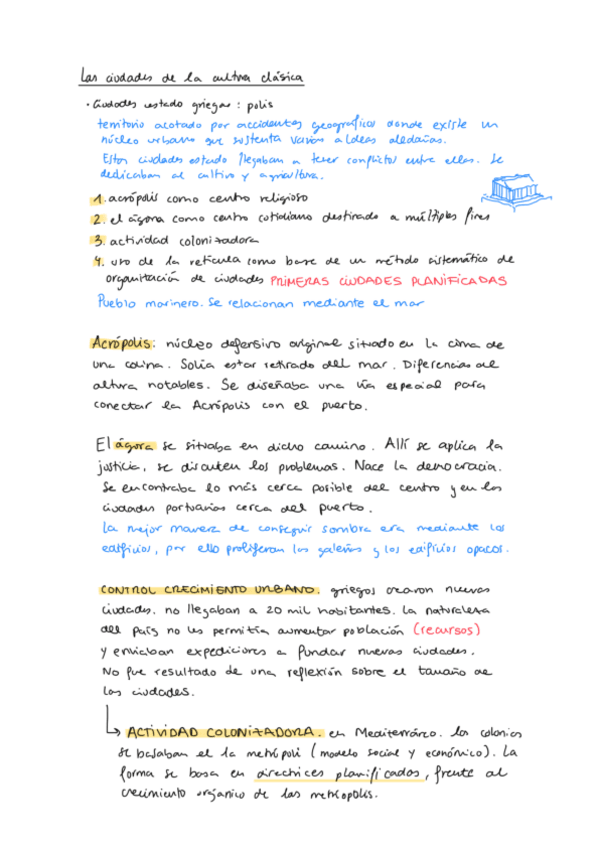 Las ciudades de la cultura clásica
· Ciudades estado griegas : polis
territorio acotado por accidentes geográficos donde existe un
núcleo urbano que sustenta varias aldeas aledañas.
Estas ciudades estado llegaban a tener conflictos entre ellas. Se
dedicaban al cultivo y agricultura.
1. acrópolis como centro religioso
2. el ágora como centro cotidiano destinado a múltiples fines
3. actividad colonizadora
4. uso de la retícula como base de un método sistemático de
organización de ciudades PRIMERAS CIUDADES PLANIFICADAS
Pueblo marinero. Se relacionan mediante el mar
Acrópolis: núcleo defensivo original situado en la cima de
una colina. Solía estar retirado del mar. Diferencias de
altura notables. Se diseñaba una vía especial para
conectar la Acrópolis con el puerto.
El ágora se situaba en dicho camino. Allí se aplica la
justicia, se discuten los problemas. Nace la democracia.
Se encontraba lo más cerca posible del centro y en las
ciudades portuarias cerca del puerto.
La mejor manera de conseguir sombra era mediante los
edificios, por ello proliferan las galerías y los edificios opacos.
CONTROL CRECIMIENTO URBANO. griegos crearon nuevas
ciudades. no llegaban a 20 mil habitantes. La naturaleza
del país no les permitía aumentar población (recursos)
y enviaban expediciones a fundar nuevas ciudades.
No fue resultado de una reflexión sobre el tamaño de
las ciudades.
↳ ACTIVIDAD COLONIZADORA. en Mediterráneo. las colonias
se basaban el la metrópoli (modelo social y económico). La
forma se basa en directrices planificadas, frente al
crecimiento orgánico de las metrópolis.